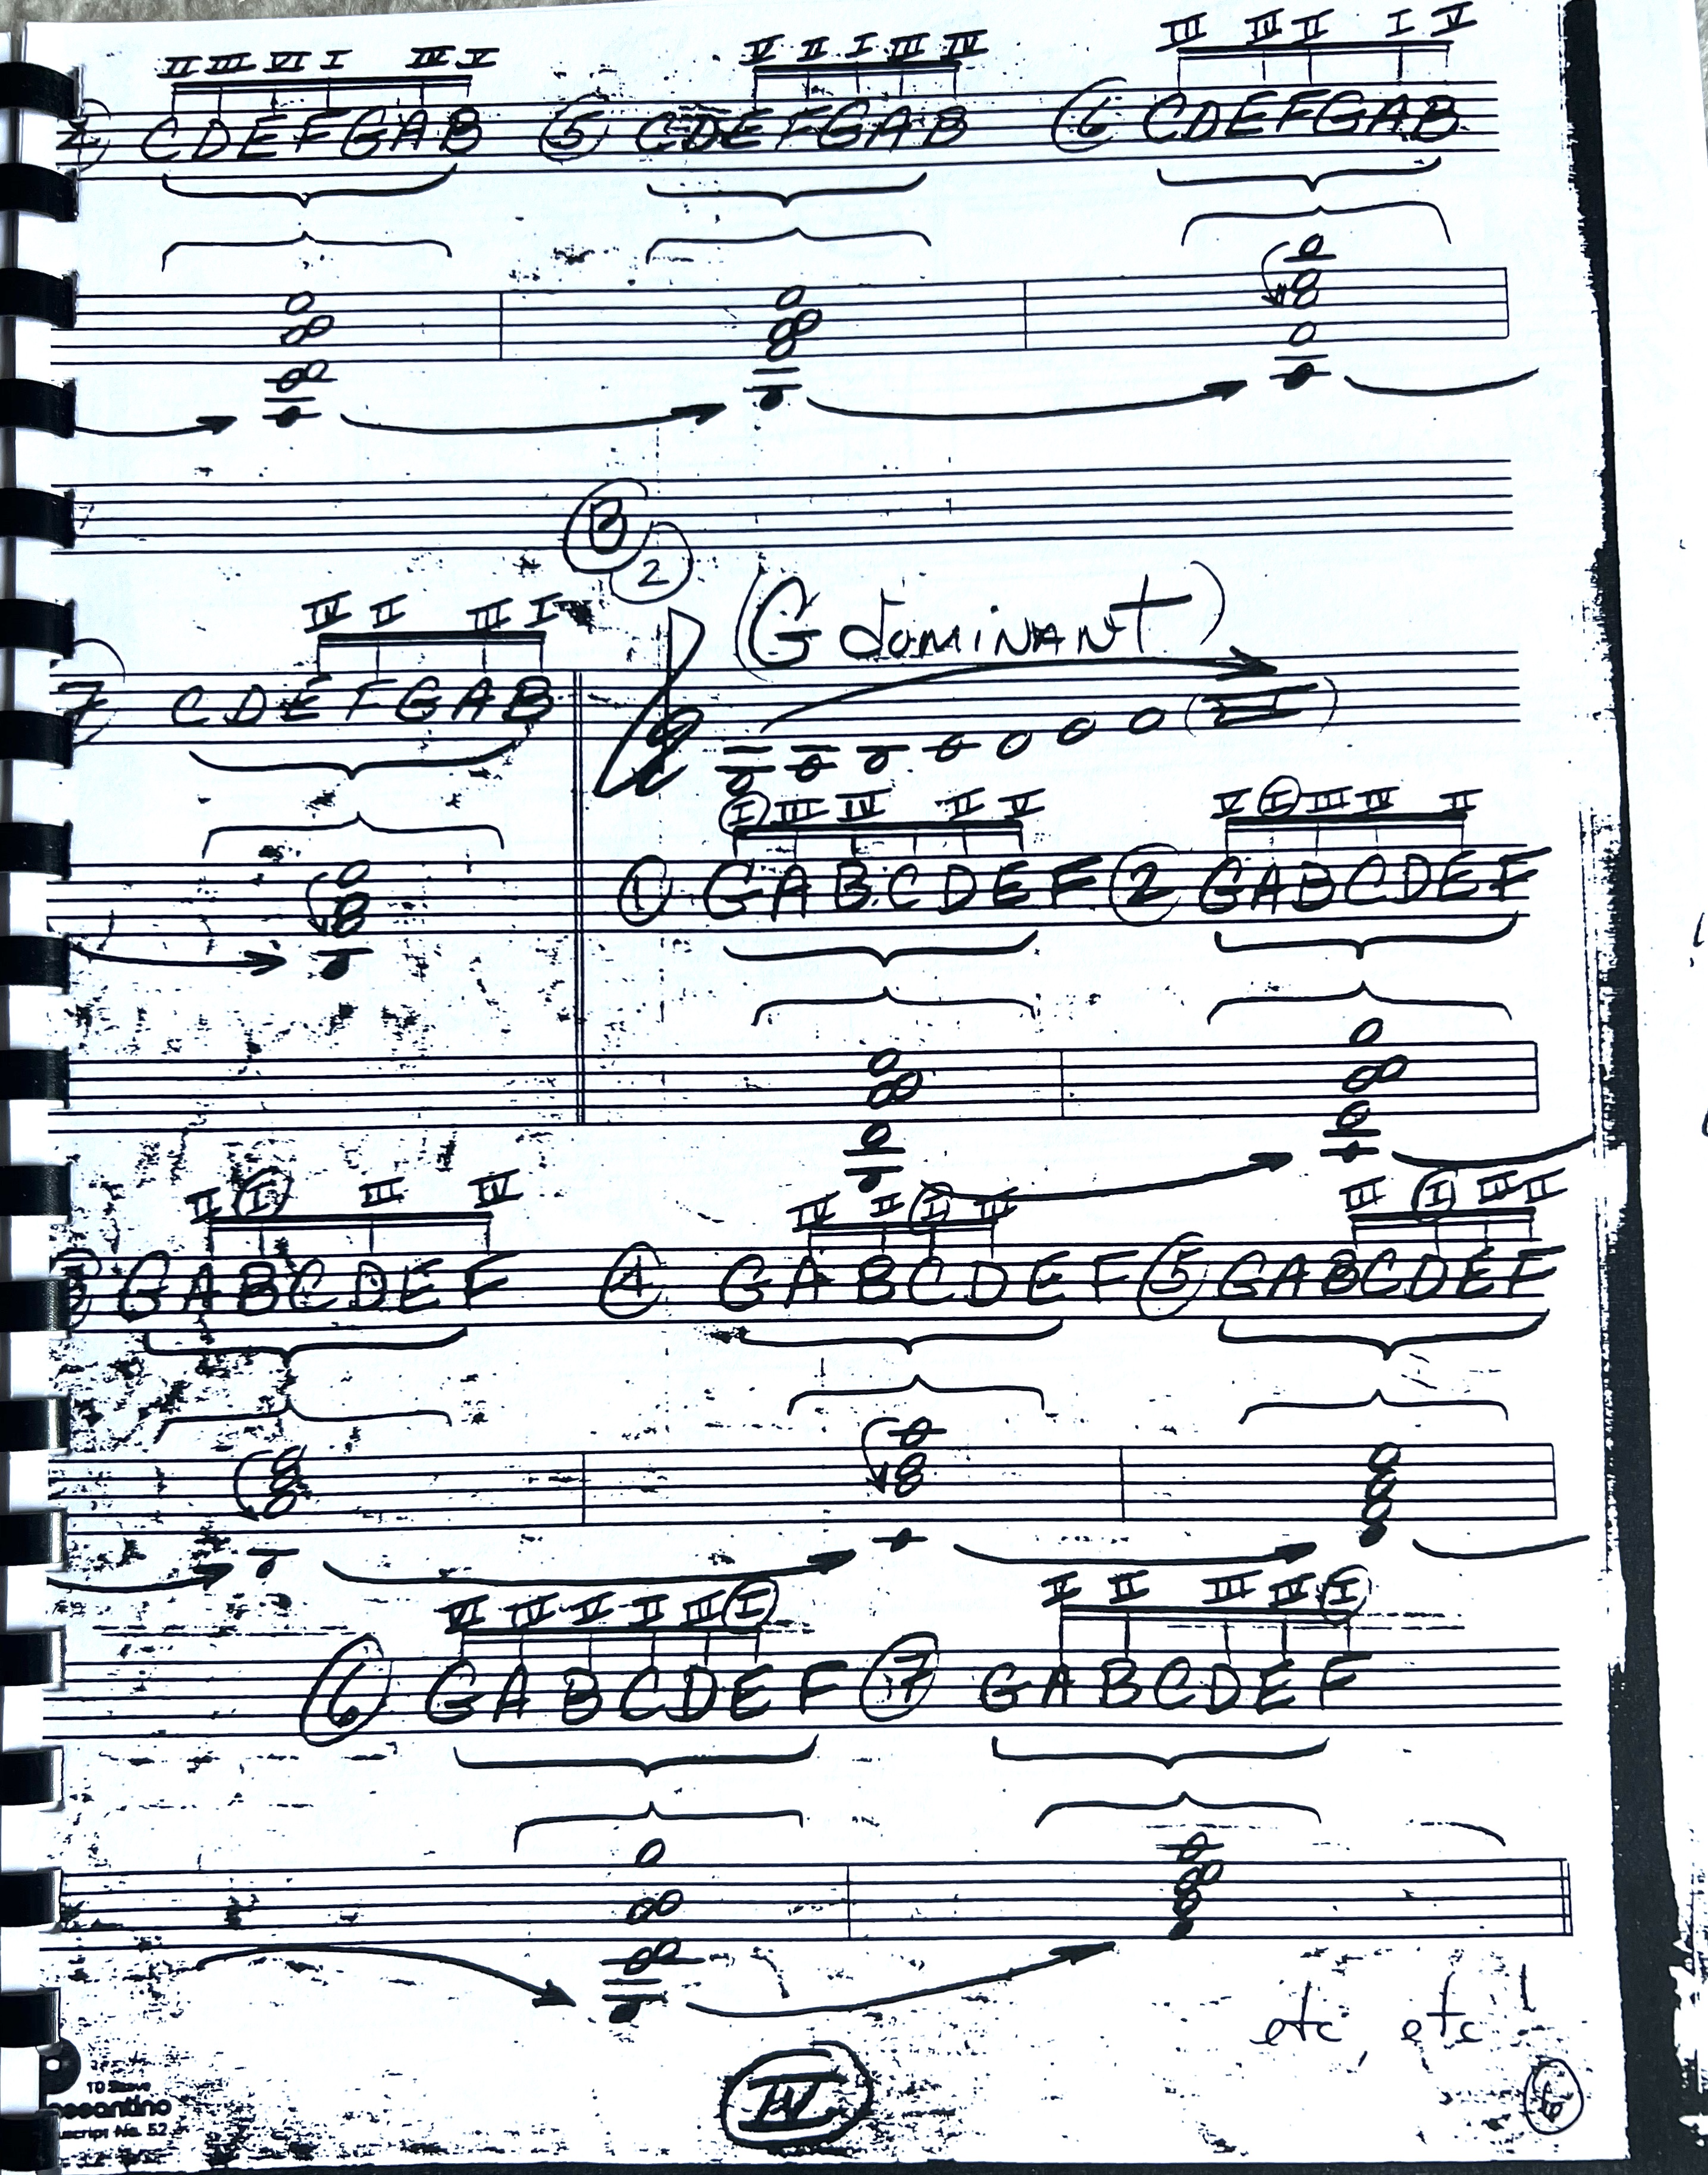 II III VI I IV V V II I III IV III IV II I V
4 CDEFGAB 5 CDEFGAB 6 CDEFGAB
B 2
IV II III I (G dominant)
7 CDEFGAB
I III IV II V V I III IV II
1 GABCDEF 2 GABCDEF
II I III IV IV II I III III I IV II
3 GABCDEF 4 GABCDEF 5 GABCDEF
VI IV V II III I V II III IV I
6 GABCDEF 7 GABCDEF
etc, etc!
IV
10 Stave
script No. 52